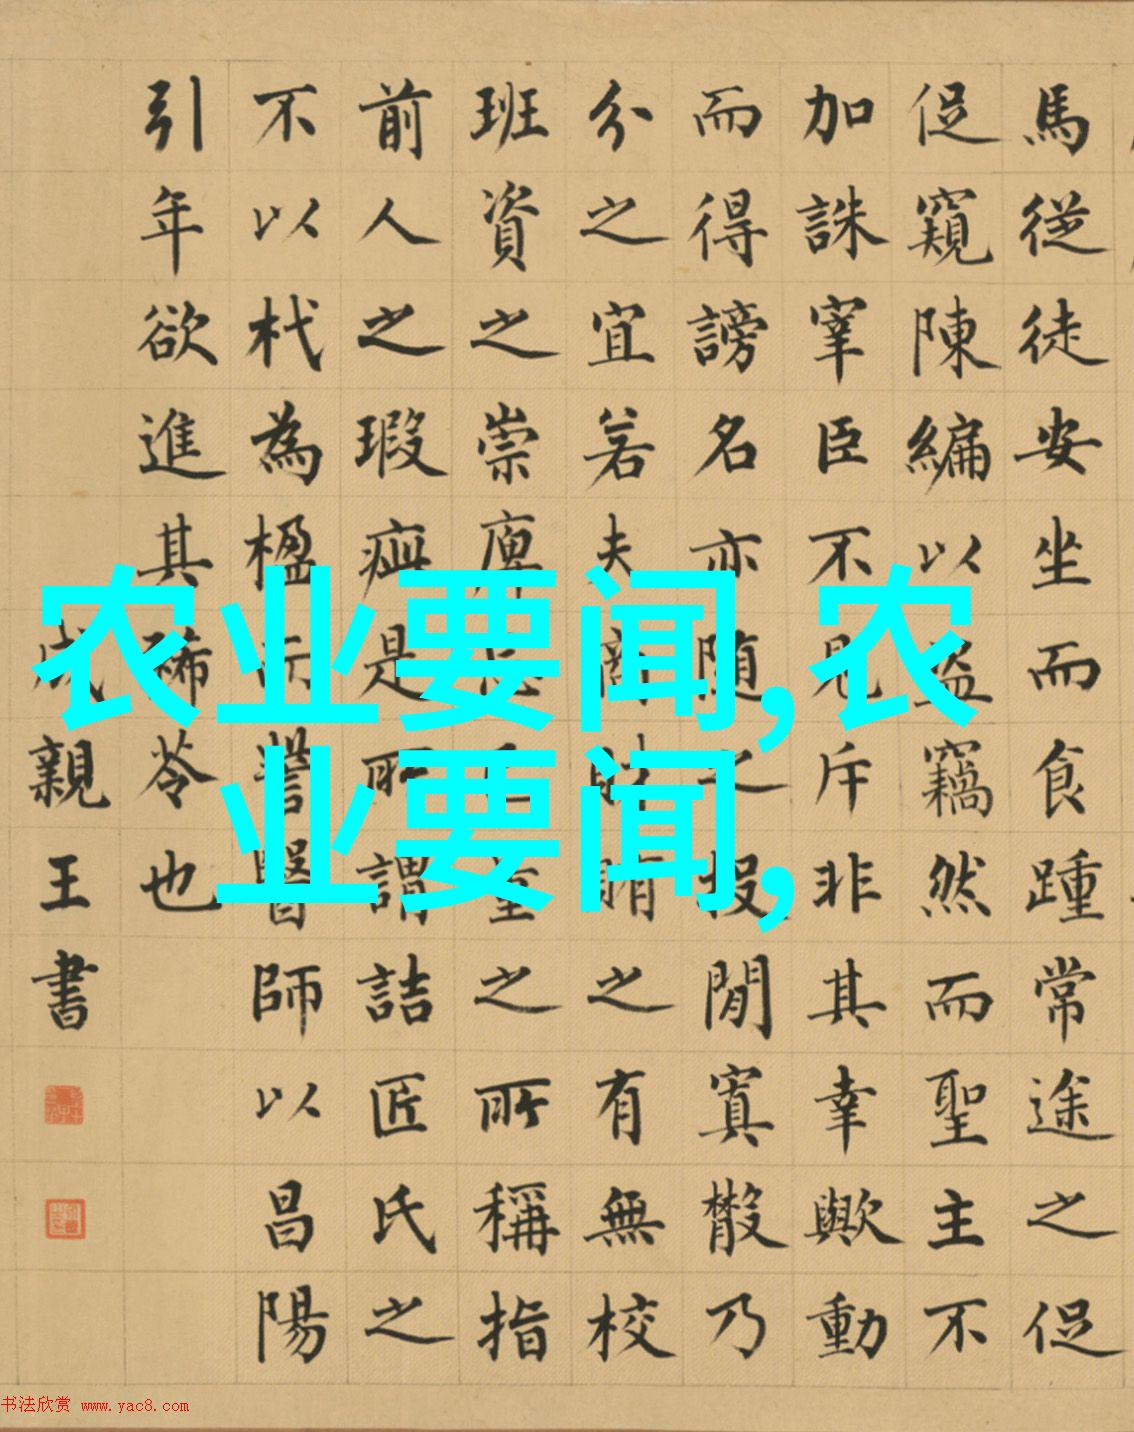 馬從徒安坐而食踵常途之促
促窺陳編以盜竊然而聖主不
加誅宰臣不見斥非其幸歟動
而得謗名亦随之投閒寘散乃
分之宜若夫商財賄之有無校
班資之崇庳忘己量之所稱指
前人之瑕疵是所謂詰匠氏之
不以杙為楹而訾醫師以昌陽
引年欲進其豨苓也
成親王書
农业要闻,农
业要闻,
书法欣赏 www.yac8.com